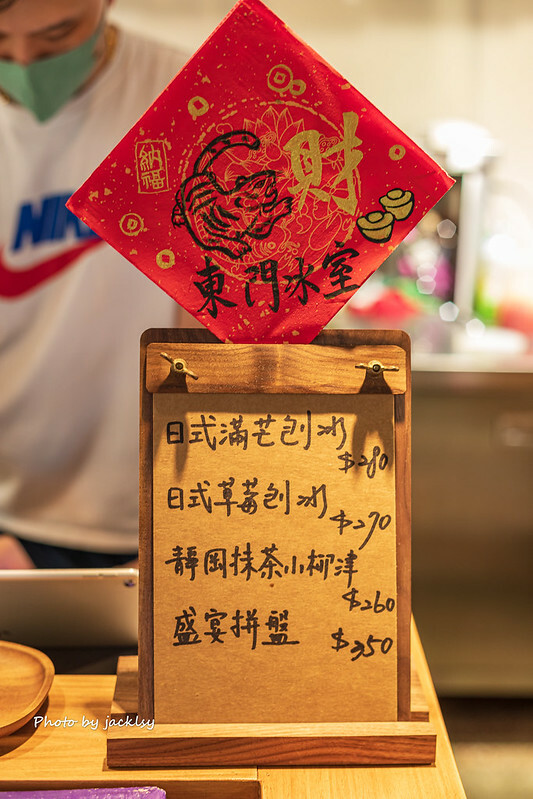 納福
財
東門冰室
NIKE
日式滿芒刨冰
$280
日式草莓刨冰
$270
靜岡抹茶小柳津
$260
盛宴拼盤
$350
Photo by jacklsy